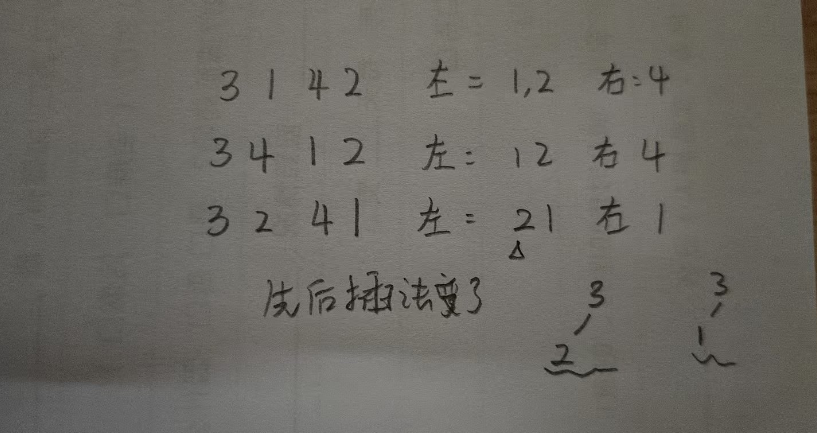 3 1 4 2 左 = 1,2 右:4
3 4 1 2 左: 1 2 右 4
3 2 4 1 左 = 2 1 右 1
先后插法变了
3 3
2 1